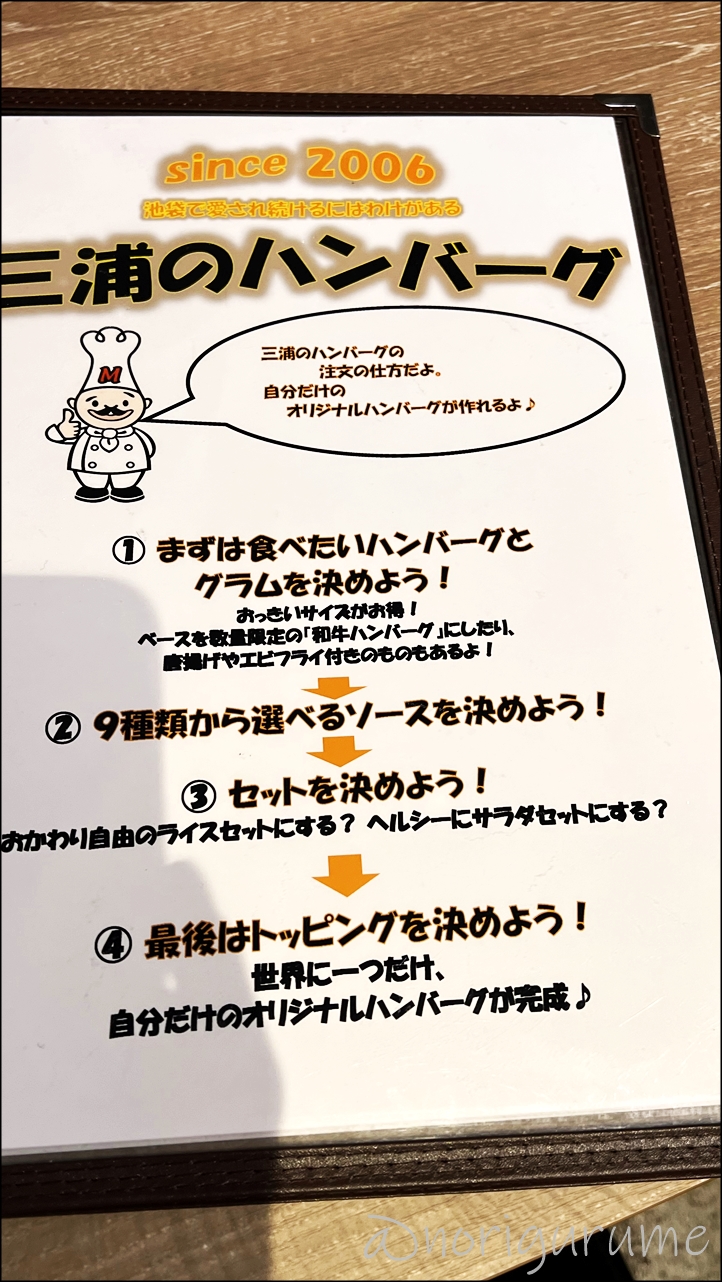 since 2006
池袋で愛され続けるにはわけがある
三浦のハンバーグ
M
三浦のハンバーグの
注文の仕方だよ。
自分だけの
オリジナルハンバーグが作れるよ♪
① まずは食べたいハンバーグと
グラムを決めよう！
おっきいサイズがお得！
ベースを数量限定の「和牛ハンバーグ」にしたり、
唐揚げやエビフライ付きのものもあるよ！
② 9種類から選べるソースを決めよう！
③ セットを決めよう！
おかわり自由のライスセットにする？ ヘルシーにサラダセットにする？
④ 最後はトッピングを決めよう！
世界に一つだけ、
自分だけのオリジナルハンバーグが完成♪
@norigurume